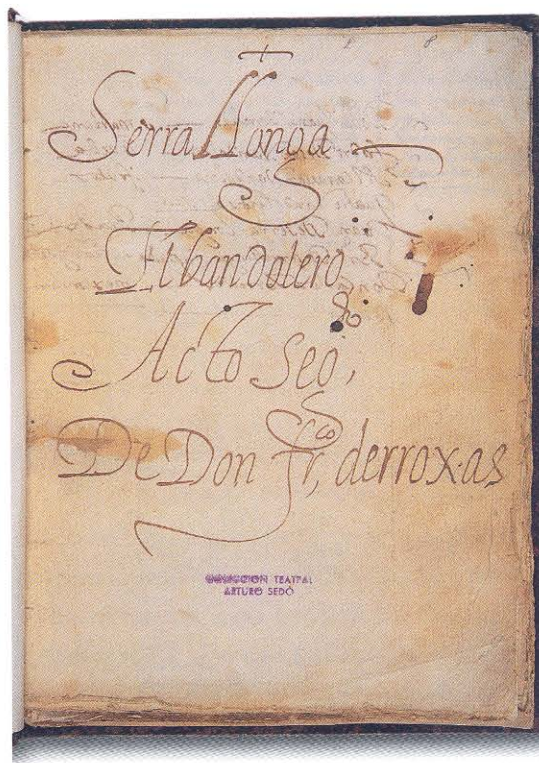 Serrallonga
El bandolero
Acto Seg,
De Don fr,co derroxas
COLECCION TEATRAL
ARTURO SEDÓ